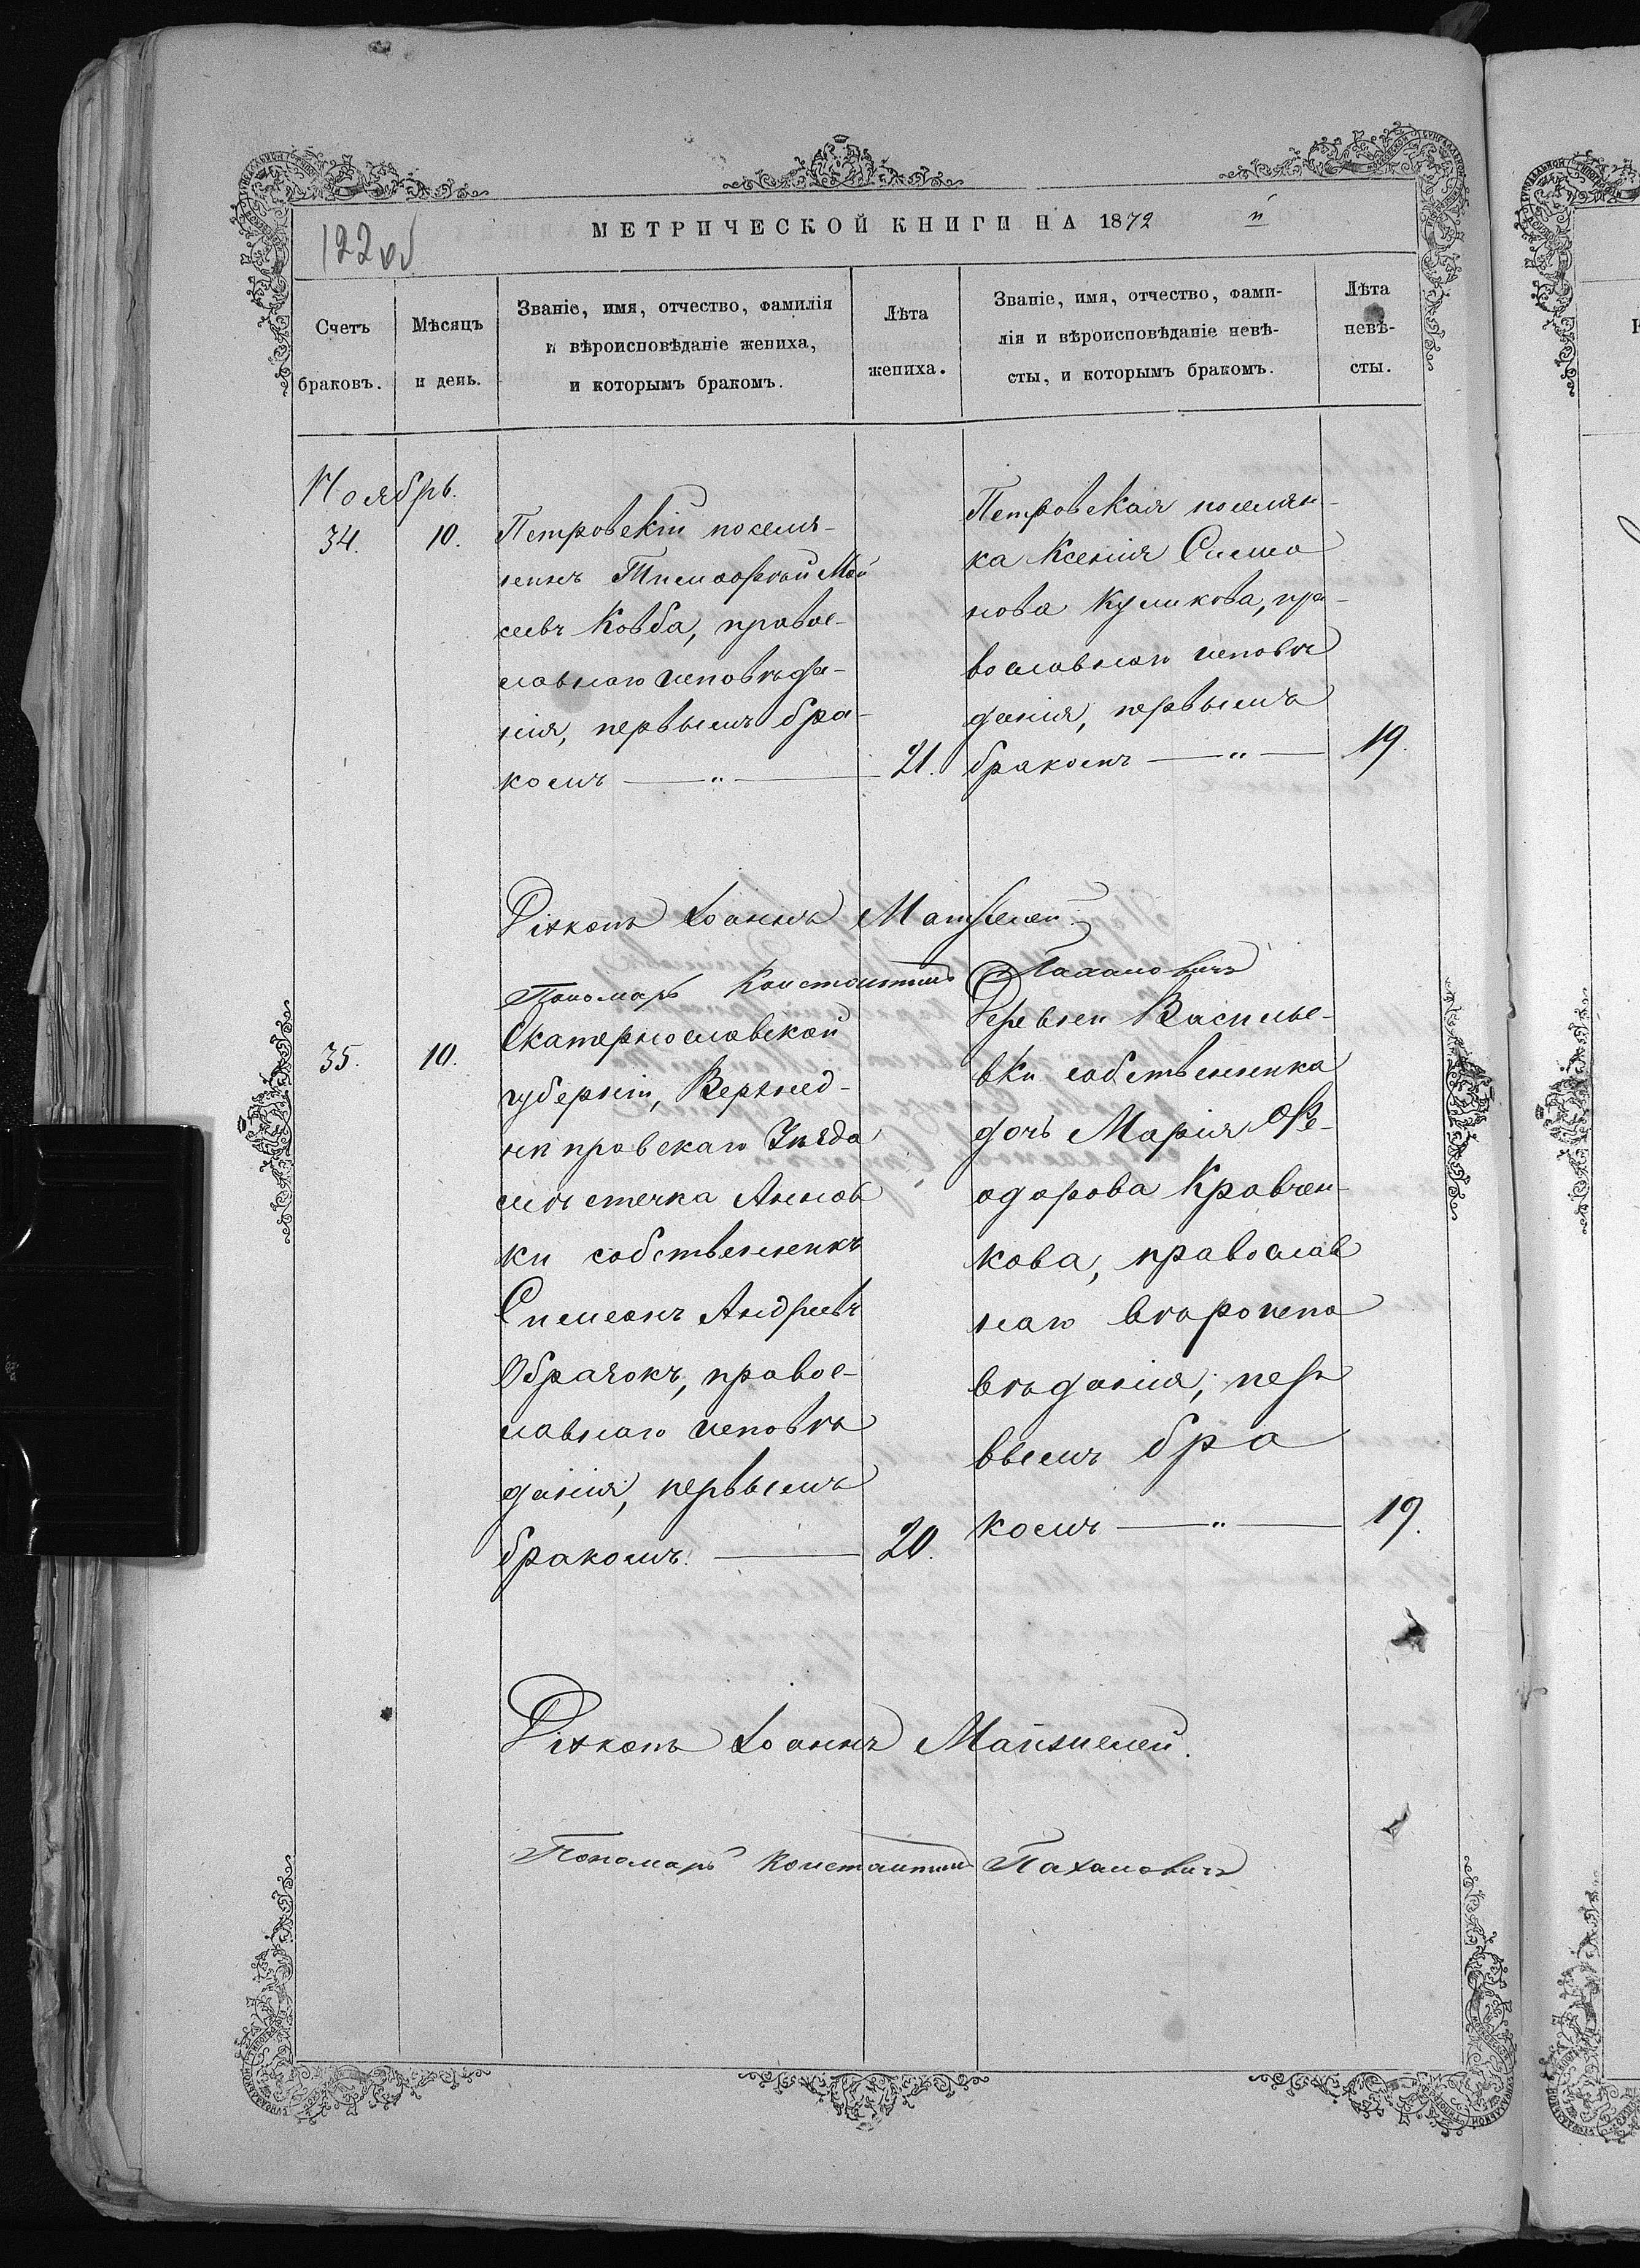 122 об
МЕТРИЧЕСКОЙ КНИГИ НА 1872 й
Счетъ браковъ.
Мѣсяцъ и день.
Званіе, имя, отчество, фамилія
и вѣроисповѣданіе жениха,
и которымъ бракомъ.
Лѣта
жениха.
Званіе, имя, отчество, фами-
лія и вѣроисповѣданіе невѣ-
сты, и которымъ бракомъ.
Лѣта
невѣ-
сты.
Ноябрь.
34.
10.
Петровскій поселя-
нинъ Тимофей Мои
сеевъ Ковба, правос-
лавнаго исповѣда-
нія, первымъ бра-
комъ — „ —
21.
Петровская поселян-
ка Ксенія Симо
нова Куликова, пра-
вославнаго исповѣ
данія, первымъ
бракомъ — „ —
19.
Діяконъ Іоаннъ
Пономарь Константинъ Паханович
35.
10.
Екатеринославской
губерніи, Верхнед-
нѣпровскаго Уѣзда
мѣстечка Аннов
ки собственникъ
Симеонъ Андреевъ
Образокъ, правос-
лавнаго исповѣ
данія, первымъ
бракомъ. —
20.
Деревни Василье-
вки собственника
дочь Марія Фе-
одорова Кравчен-
кова, православ
наго вѣроиспо
вѣданія, пер
вымъ бра
комъ — „ —
19.
Діяконъ Іоаннъ
Пономарь Константинъ Паханович